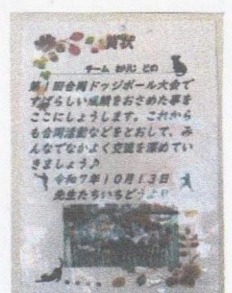 賞状
チーム おりじ どの
第1回合同ドッジボール大会で
すばらしい成績をおさめた事を
ここにしょうします。これから
も合同活動などをとおして、み
んなでなかよく交流を深めてい
きましょう♪
令和7年10月13日
先生たちいちどうより